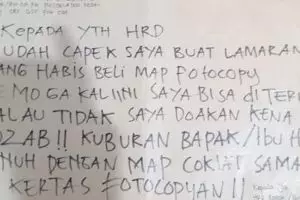 KEPADA YTH HRD
UDAH CAPEK SAYA BUAT LAMARAN
ANG HABIS BELI MAP POTOCOPY
MOGA KALIINI SAYA BISA DI TERI
ALAU TIDAK SAYA DOAKAN KENA
OZAB!! KUBURAN BAPAK/IBU H
NUH DENGAN MAP COKLAT SAMA
KERTAS FOTOCOPYAN!!
Kepada Yth